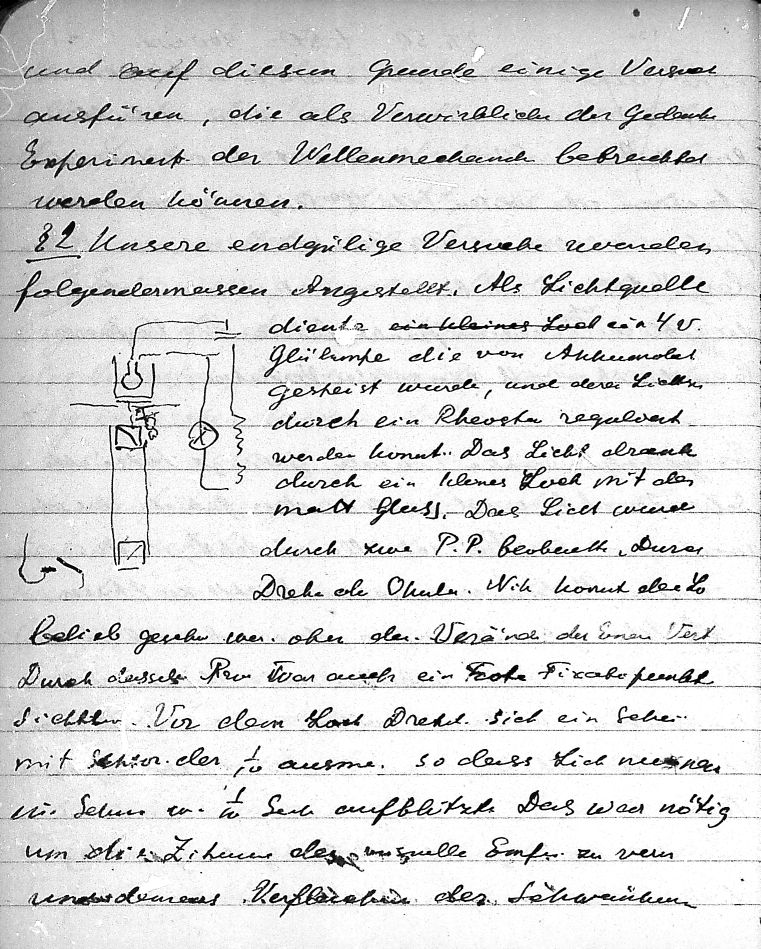 und auf diesem Grunde einige Versu
ausfüren, die als Verwirkliche der Gedank
Experiment der Wellenmechanik betrachtet
werden können.
§2 Unsere endgülige Versuche wurden
folgendermassen Angestellt. Als Lichtquelle
diente ein kleines Loch ein 4 v.
Glülampe die von Akkumulat
gespeist wurde, und deren Licht
durch ein Rheosta reguliert
werden konnt. Das Licht drank
durch ein kleines Loch mit den
matt Glass. Das Licht wurde
durch zwe P.P. beobacht. Durch
Drehe de Okula. Nik konnt die
belieb gesehe wer. ohne der Verände der Einen Vert
Durch dasselbe war auch ein Rote Fixatspunkt
Sichtba. Vor dem Loch Dreht sich ein Schei
mit Sektor der 1/10 ausma. so dass Licht nur
1/10 Sek aufblitzte Das war nötig
um die der visuelle Empfi zu verm
und Verfl der Schwankun